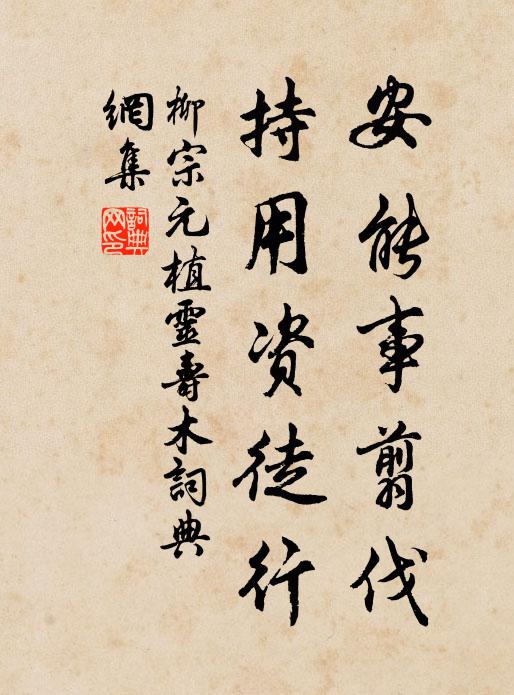 安能事翦伐
持用资徒行
柳宗元植靈壽木詞典
網集
詞典
网印